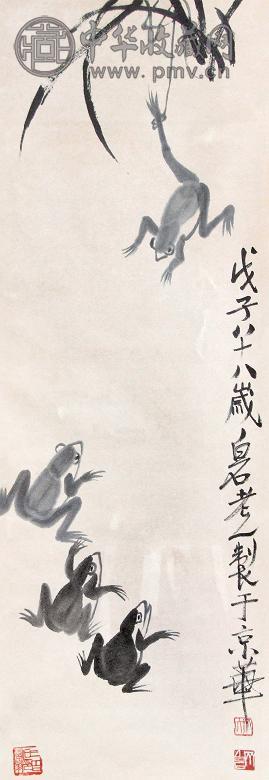 中华收藏网
www.pmv.cn
戊子八十八歲白石老人製于京華